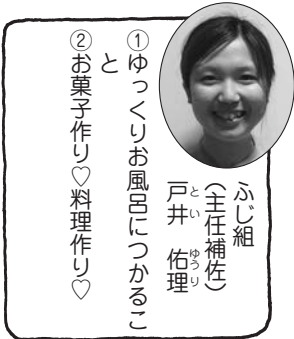 ふじ組
（主任補佐）
戸井　佑理
とい　ゆうり
①ゆっくりお風呂につかるこ
と
②お菓子作り♡料理作り♡